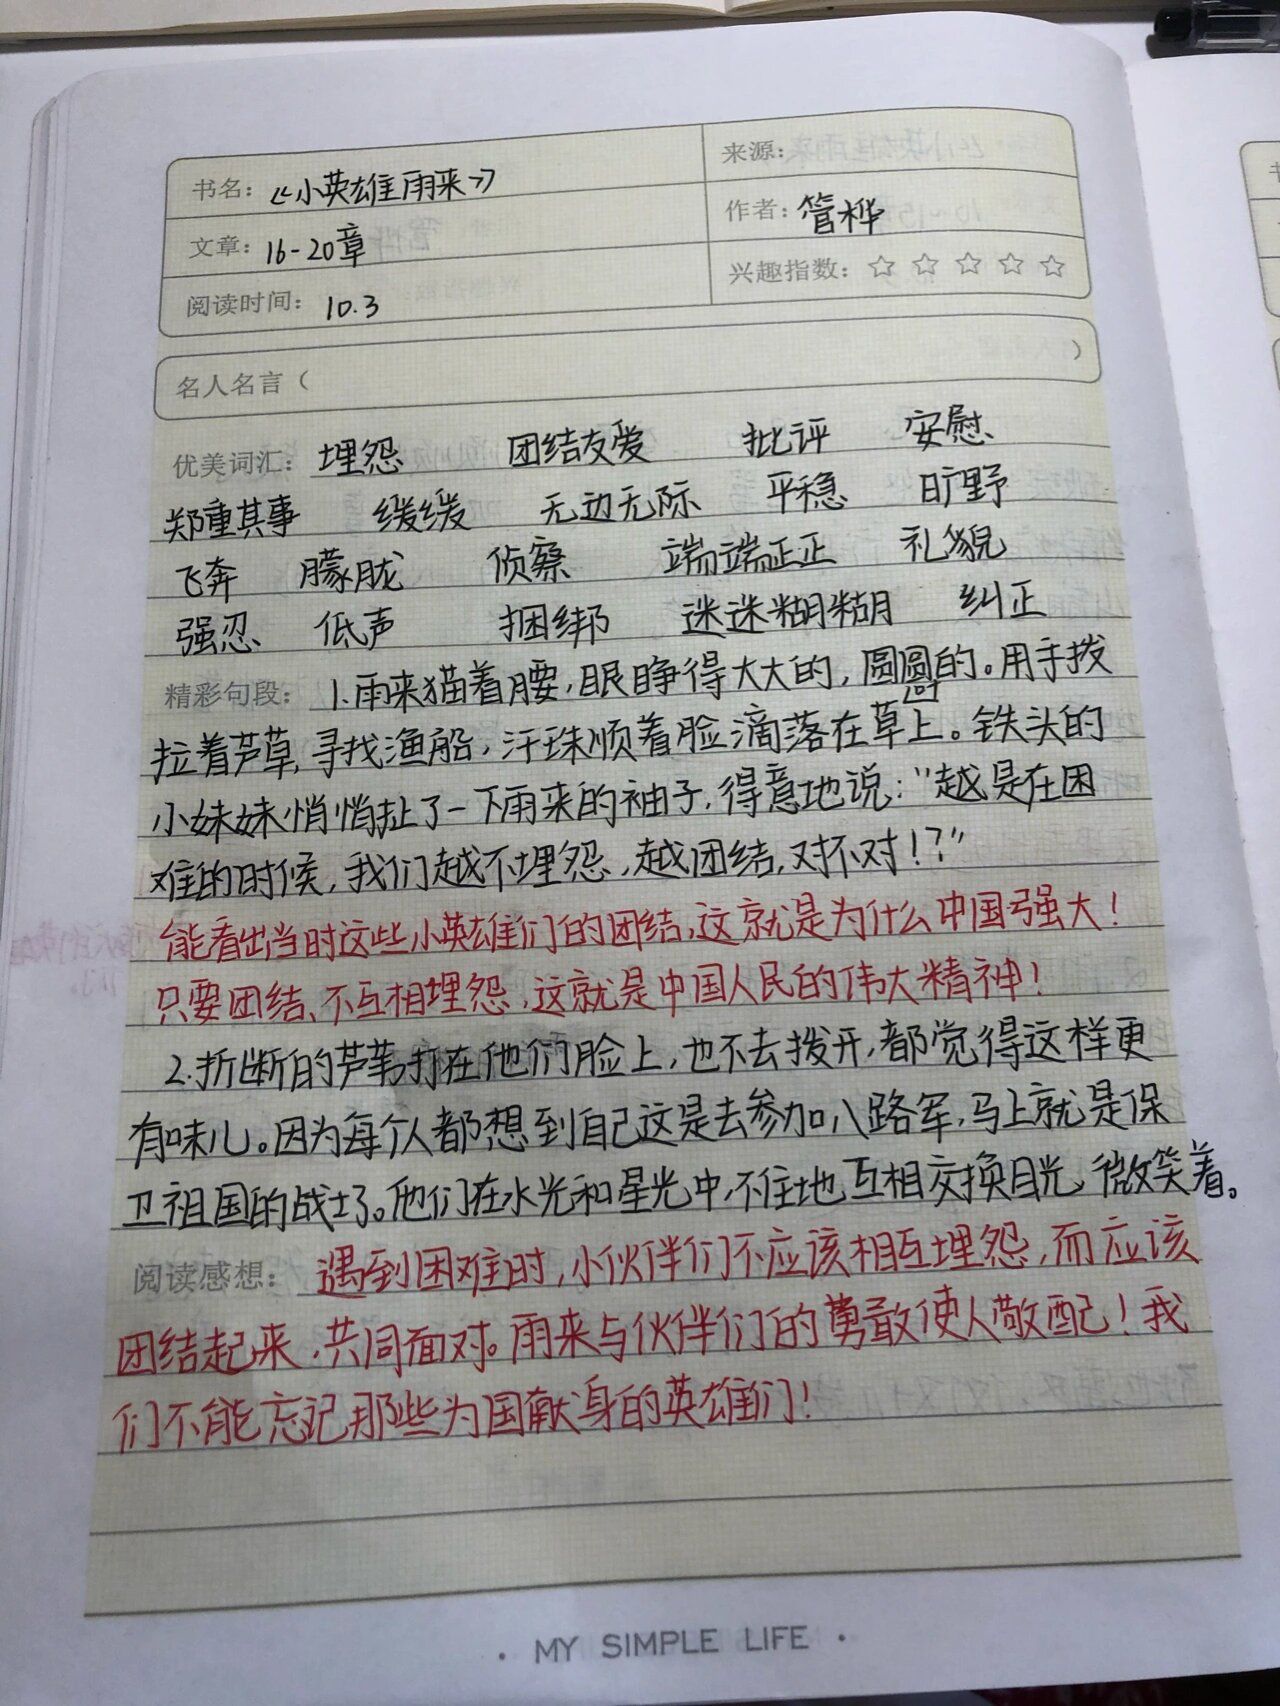 书名：《小英雄雨来》
来源：
文章：16-20章
作者：管桦
阅读时间：10.3
兴趣指数：☆ ☆ ☆ ☆ ☆
名人名言（ ）
优美词汇：埋怨 团结友爱 批评 安慰
郑重其事 缓缓 无边无际 平稳 旷野
飞奔 朦胧 侦察 端端正正 礼貌
强忍 低声 捆绑 迷迷糊糊 纠正
精彩句段：1.雨来猫着腰，眼睁得大大的，圆圆的。用手拨
拉着芦草，寻找渔船，汗珠顺着脸滴落在草叶上。铁头的
小妹妹悄悄扯了一下雨来的袖子，得意地说：“越是在困
难的时候，我们越不埋怨，越团结，对不对！？”
能看出当时这些小英雄们的团结，这就是为什么中国强大！
只要团结、不互相埋怨，这就是中国人民的伟大精神！
2.折断的芦苇打在他们脸上，也不去拨开，都觉得这样更
有味儿。因为每个人都想到自己这是去参加八路军，马上就是保
卫祖国的战士了。他们在水光和星光中，不住地互相交换目光，微笑着。
阅读感想：遇到困难时，小伙伴们不应该相互埋怨，而应该
团结起来，共同面对。雨来与伙伴们的勇敢使人敬配！我
们不能忘记那些为国献身的英雄们！
· MY SIMPLE LIFE ·